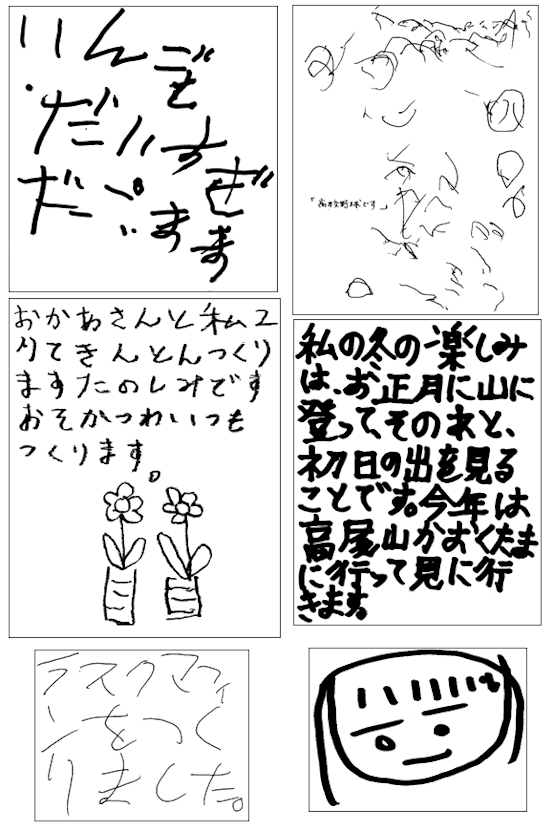 りんご
だいすき
だべます
ぎます
「高校野球です」
おかあさんと私2
りてきんとんつくり
ますたのしみです
おそかつわいつも
つくります。
私の冬の楽しみ
は、お正月に山に
登って、そのあと、
初日の出を見る
ことです。今年は
高尾山かおくたま
に行って見に行
きます。
デスクマフィ
ンをつく
りました。